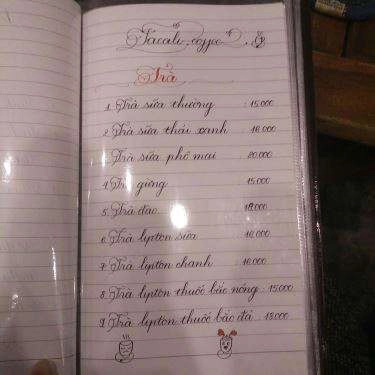 Tacali coffee
Trà
1 Trà sữa thường : 15.000
2. Trà sữa thái xanh 18.000
Trà sữa phô mai : 20.000
4. Trà gừng 15.000
5. Trà đào 18.000
6 Trà lypton sữa 16.000
7 Trà lypton chanh 16.000
8 Trà lypton thuốc bắc nóng : 15.000
9 Trà lypton thuốc bắc đá : 18.000